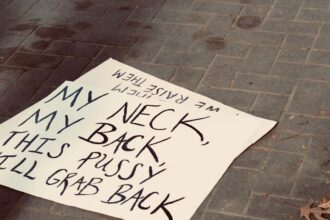 MY NECK,
MY BACK,
THIS PUSSY
GRAB BACK
WE RAISE THEM